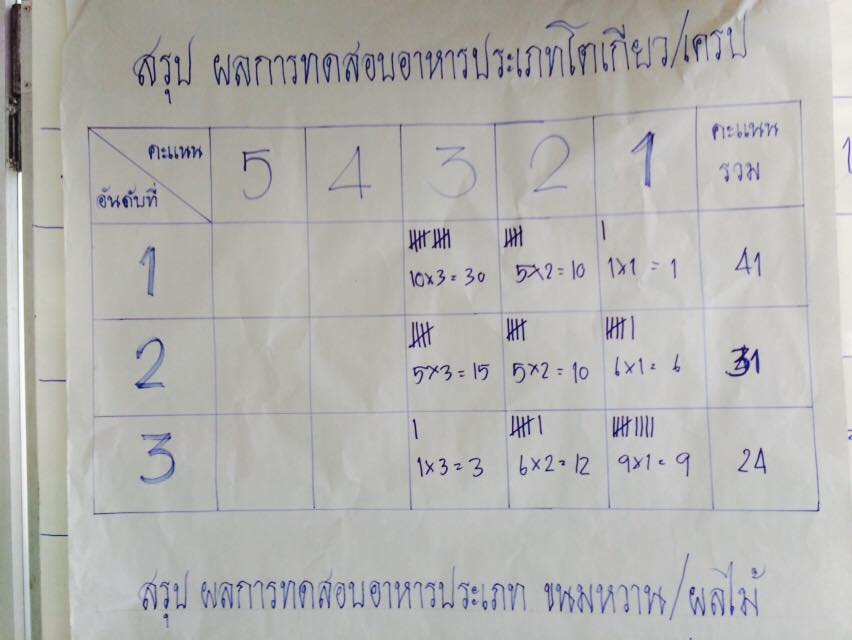 สรุป ผลการทดสอบอาหารประเภทโตเกียว/เครป
คะแนน
อันดับที่
5 4 3 2 1 คะแนน
รวม
1 10x3=30 5x2=10 1x1=1 41
2 5x3=15 5x2=10 6x1=6 31
3 1x3=3 6x2=12 9x1=9 24
สรุป ผลการทดสอบอาหารประเภท ขนมหวาน/ผลไม้